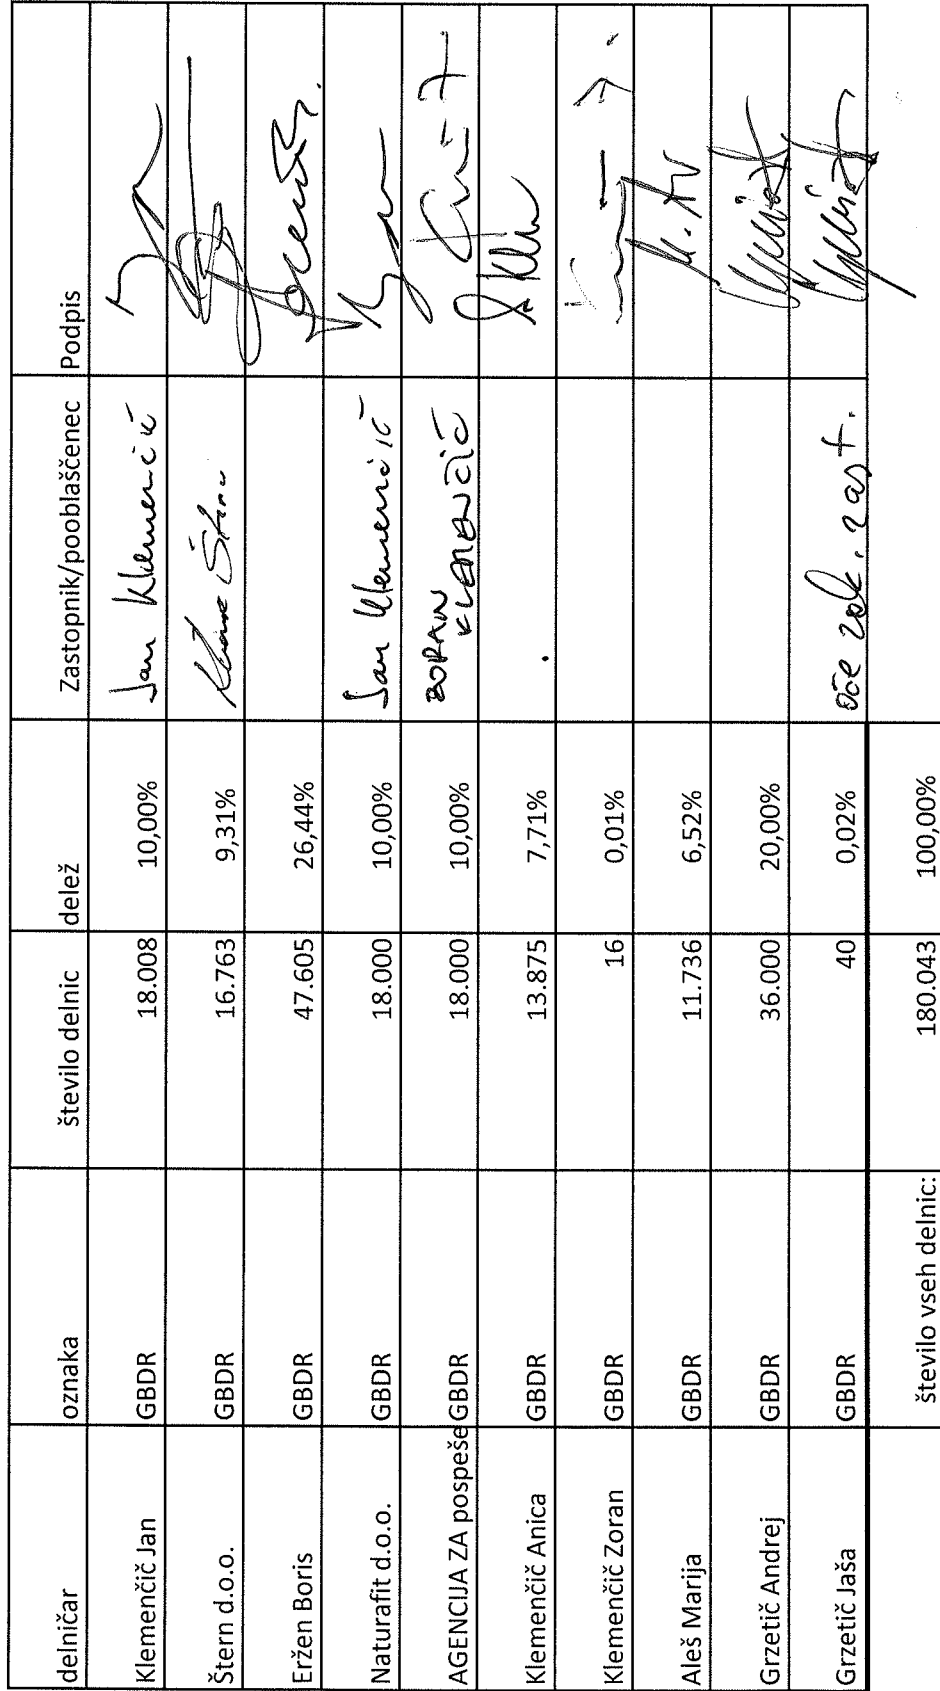 delničar oznaka število delnic delež Zastopnik/pooblaščenec Podpis
Klemenčič Jan GBDR 18.008 10,00% Jan Klemenčič
Štern d.o.o. GBDR 16.763 9,31% Štern
Eržen Boris GBDR 47.605 26,44%
Naturafit d.o.o. GBDR 18.000 10,00% Jan Klemenčič
AGENCIJA ZA pospeše GBDR 18.000 10,00% ZORAN KLEMENČIČ
Klemenčič Anica GBDR 13.875 7,71%
Klemenčič Zoran GBDR 16 0,01%
Aleš Marija GBDR 11.736 6,52%
Grzetič Andrej GBDR 36.000 20,00%
Grzetič Jaša GBDR 40 0,02% oče zak. zast.
število vseh delnic: 180.043 100,00%